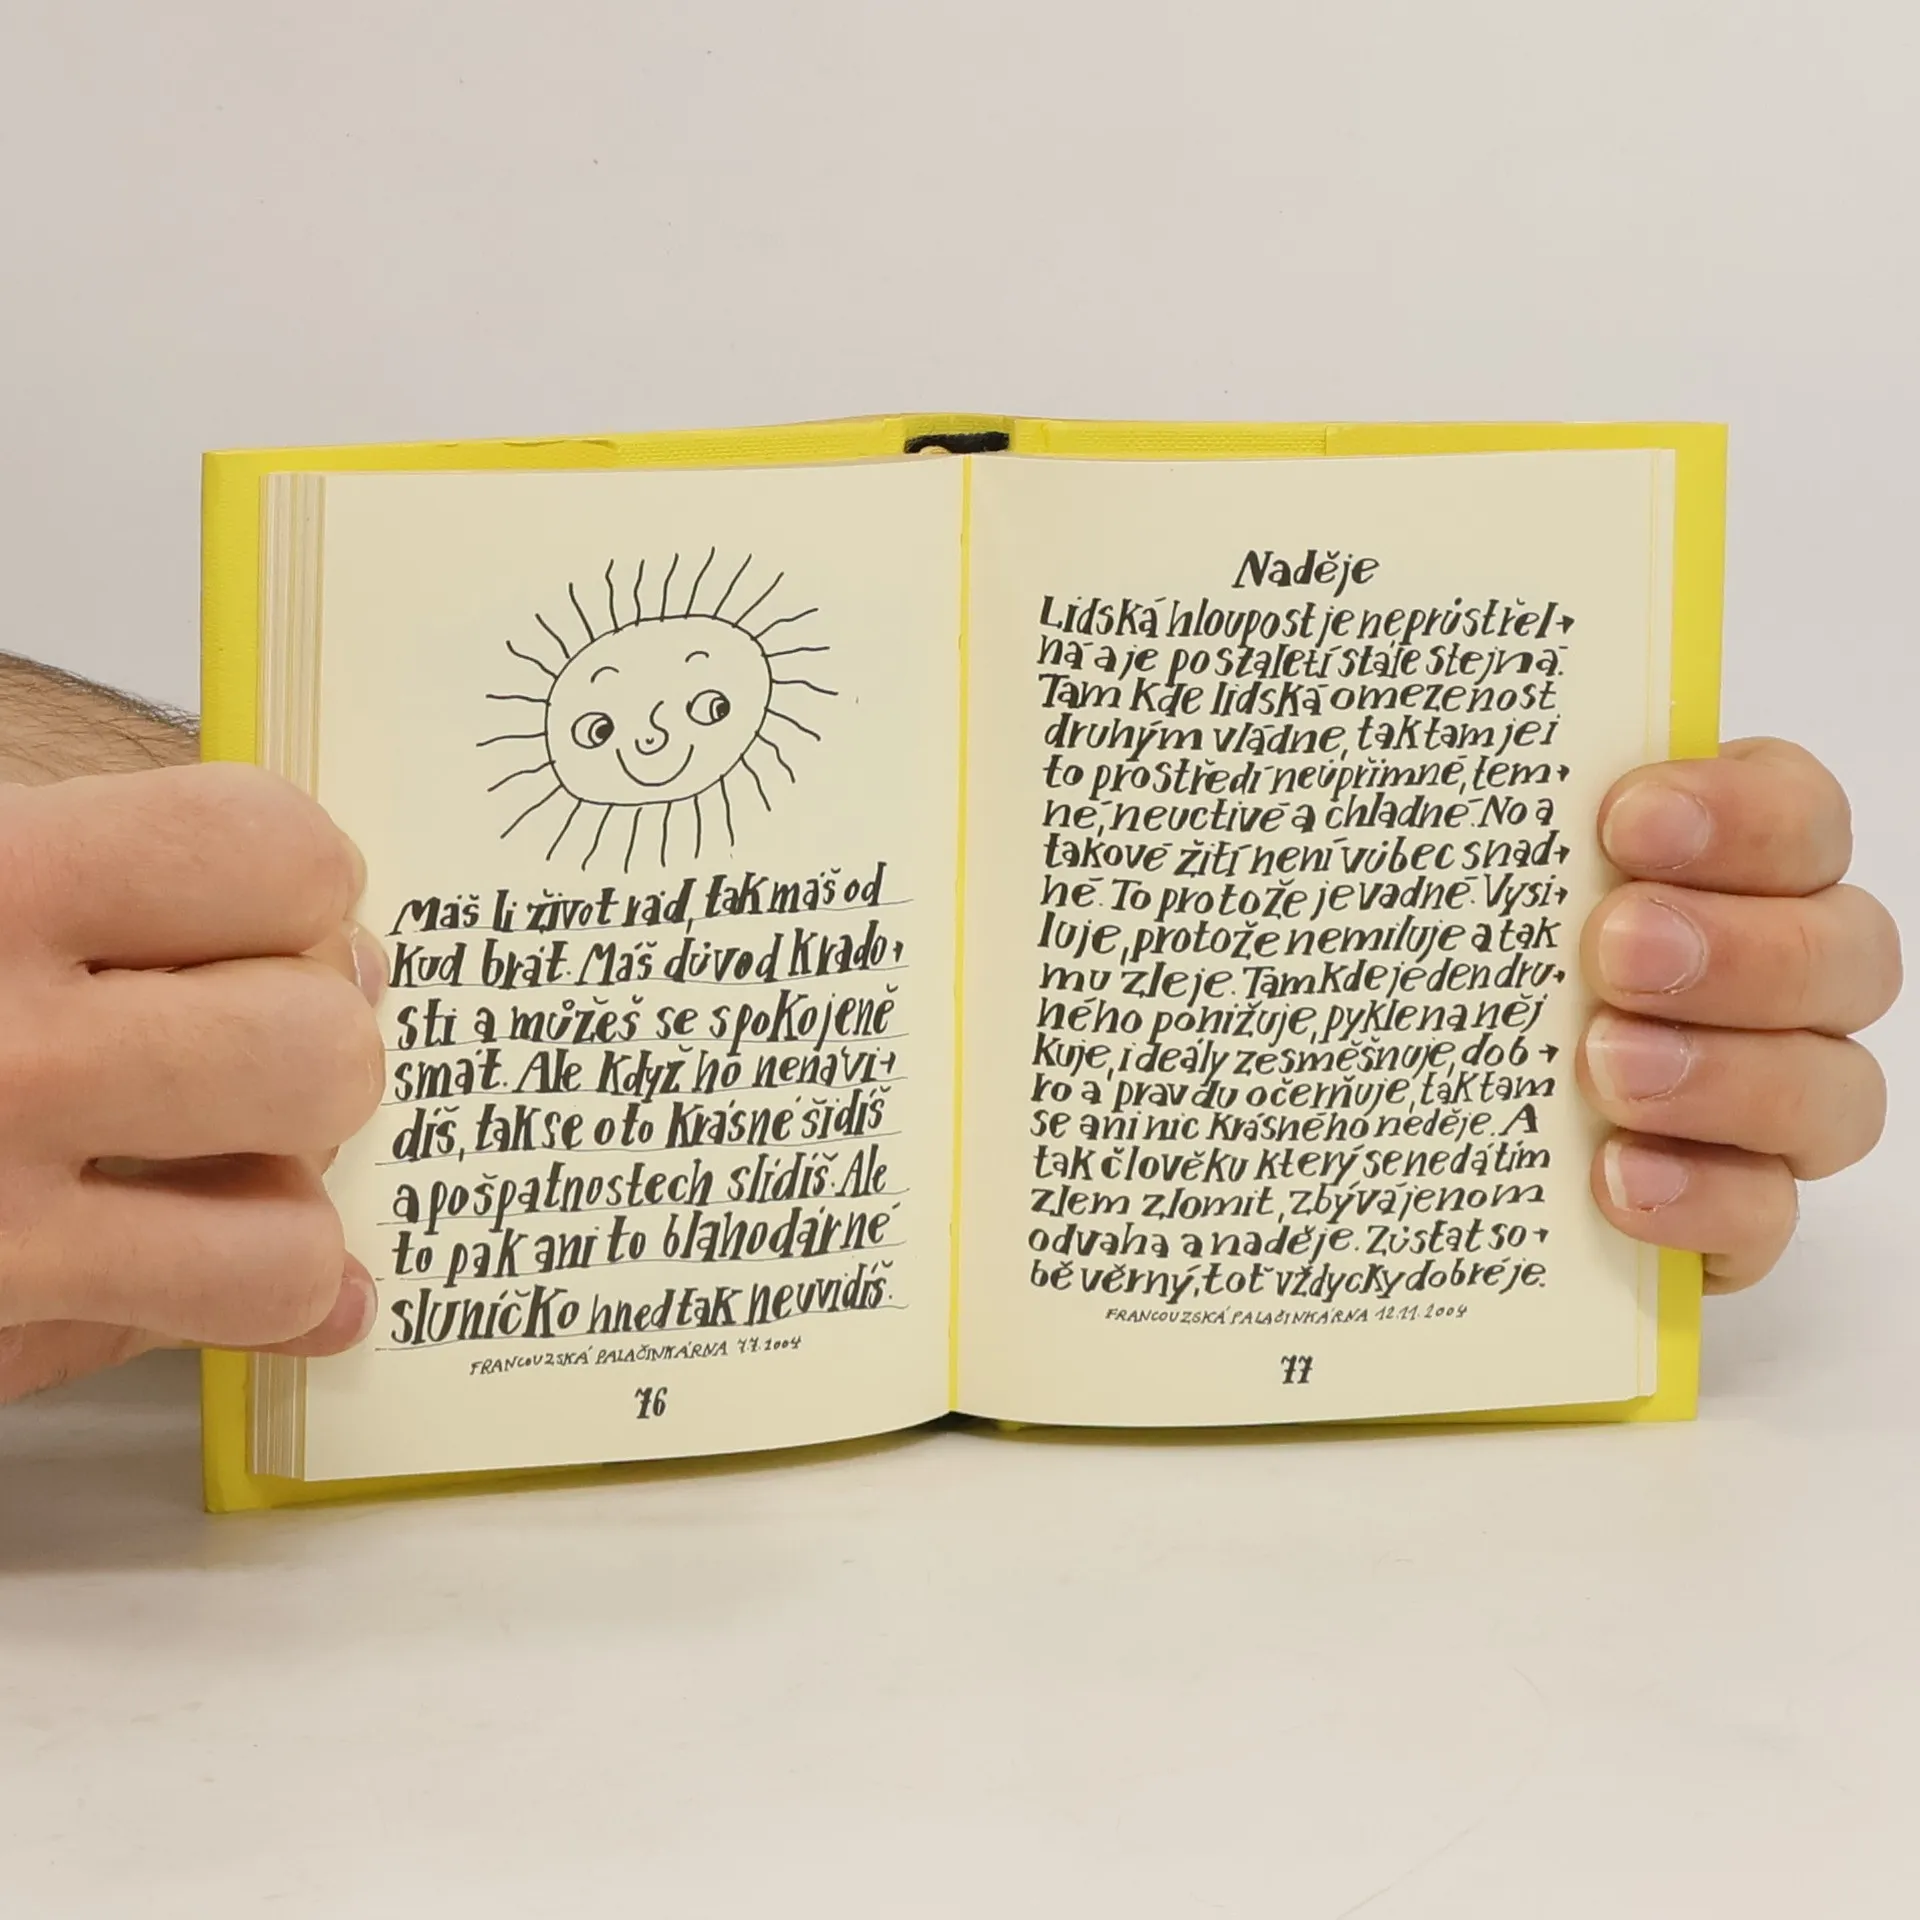 Máš li život rád, tak máš od
kud brát. Máš důvod k rado→
sti a můžeš se spokojeně
smát. Ale když ho nenávi→
díš, tak se o to krásné šidíš
a po špatnostech slídíš. Ale
to pak ani to blahodárné
sluníčko hned tak neuvidíš.
FRANCOUZSKÁ PALAČINKÁRNA 7.7.2004
76
Naděje
Lidská hloupost je neprůstřel→
ná a je po staletí stále stejná.
Tam kde lidská omezenost
druhým vládne, tak tam je i
to prostředí neupřímné, tem→
né, neuctivé a chladné. No a
takové žití není vůbec snad→
né. To protože je vadné. Vysi→
luje, protože nemiluje a tak
mu zle je. Tam kde jeden dru→
ného ponižuje, pykle na něj
kuje, ideály zesměšňuje, dob→
ro a pravdu očerňuje, tak tam
se ani nic krásného neděje. A
tak člověku který se nedá tím
zlem zlomit, zbývá jenom
odvaha a naděje. Zůstat so→
bě věrný, toť vždycky dobré je.
FRANCOUZSKÁ PALAČINKÁRNA 12.11.2004
77